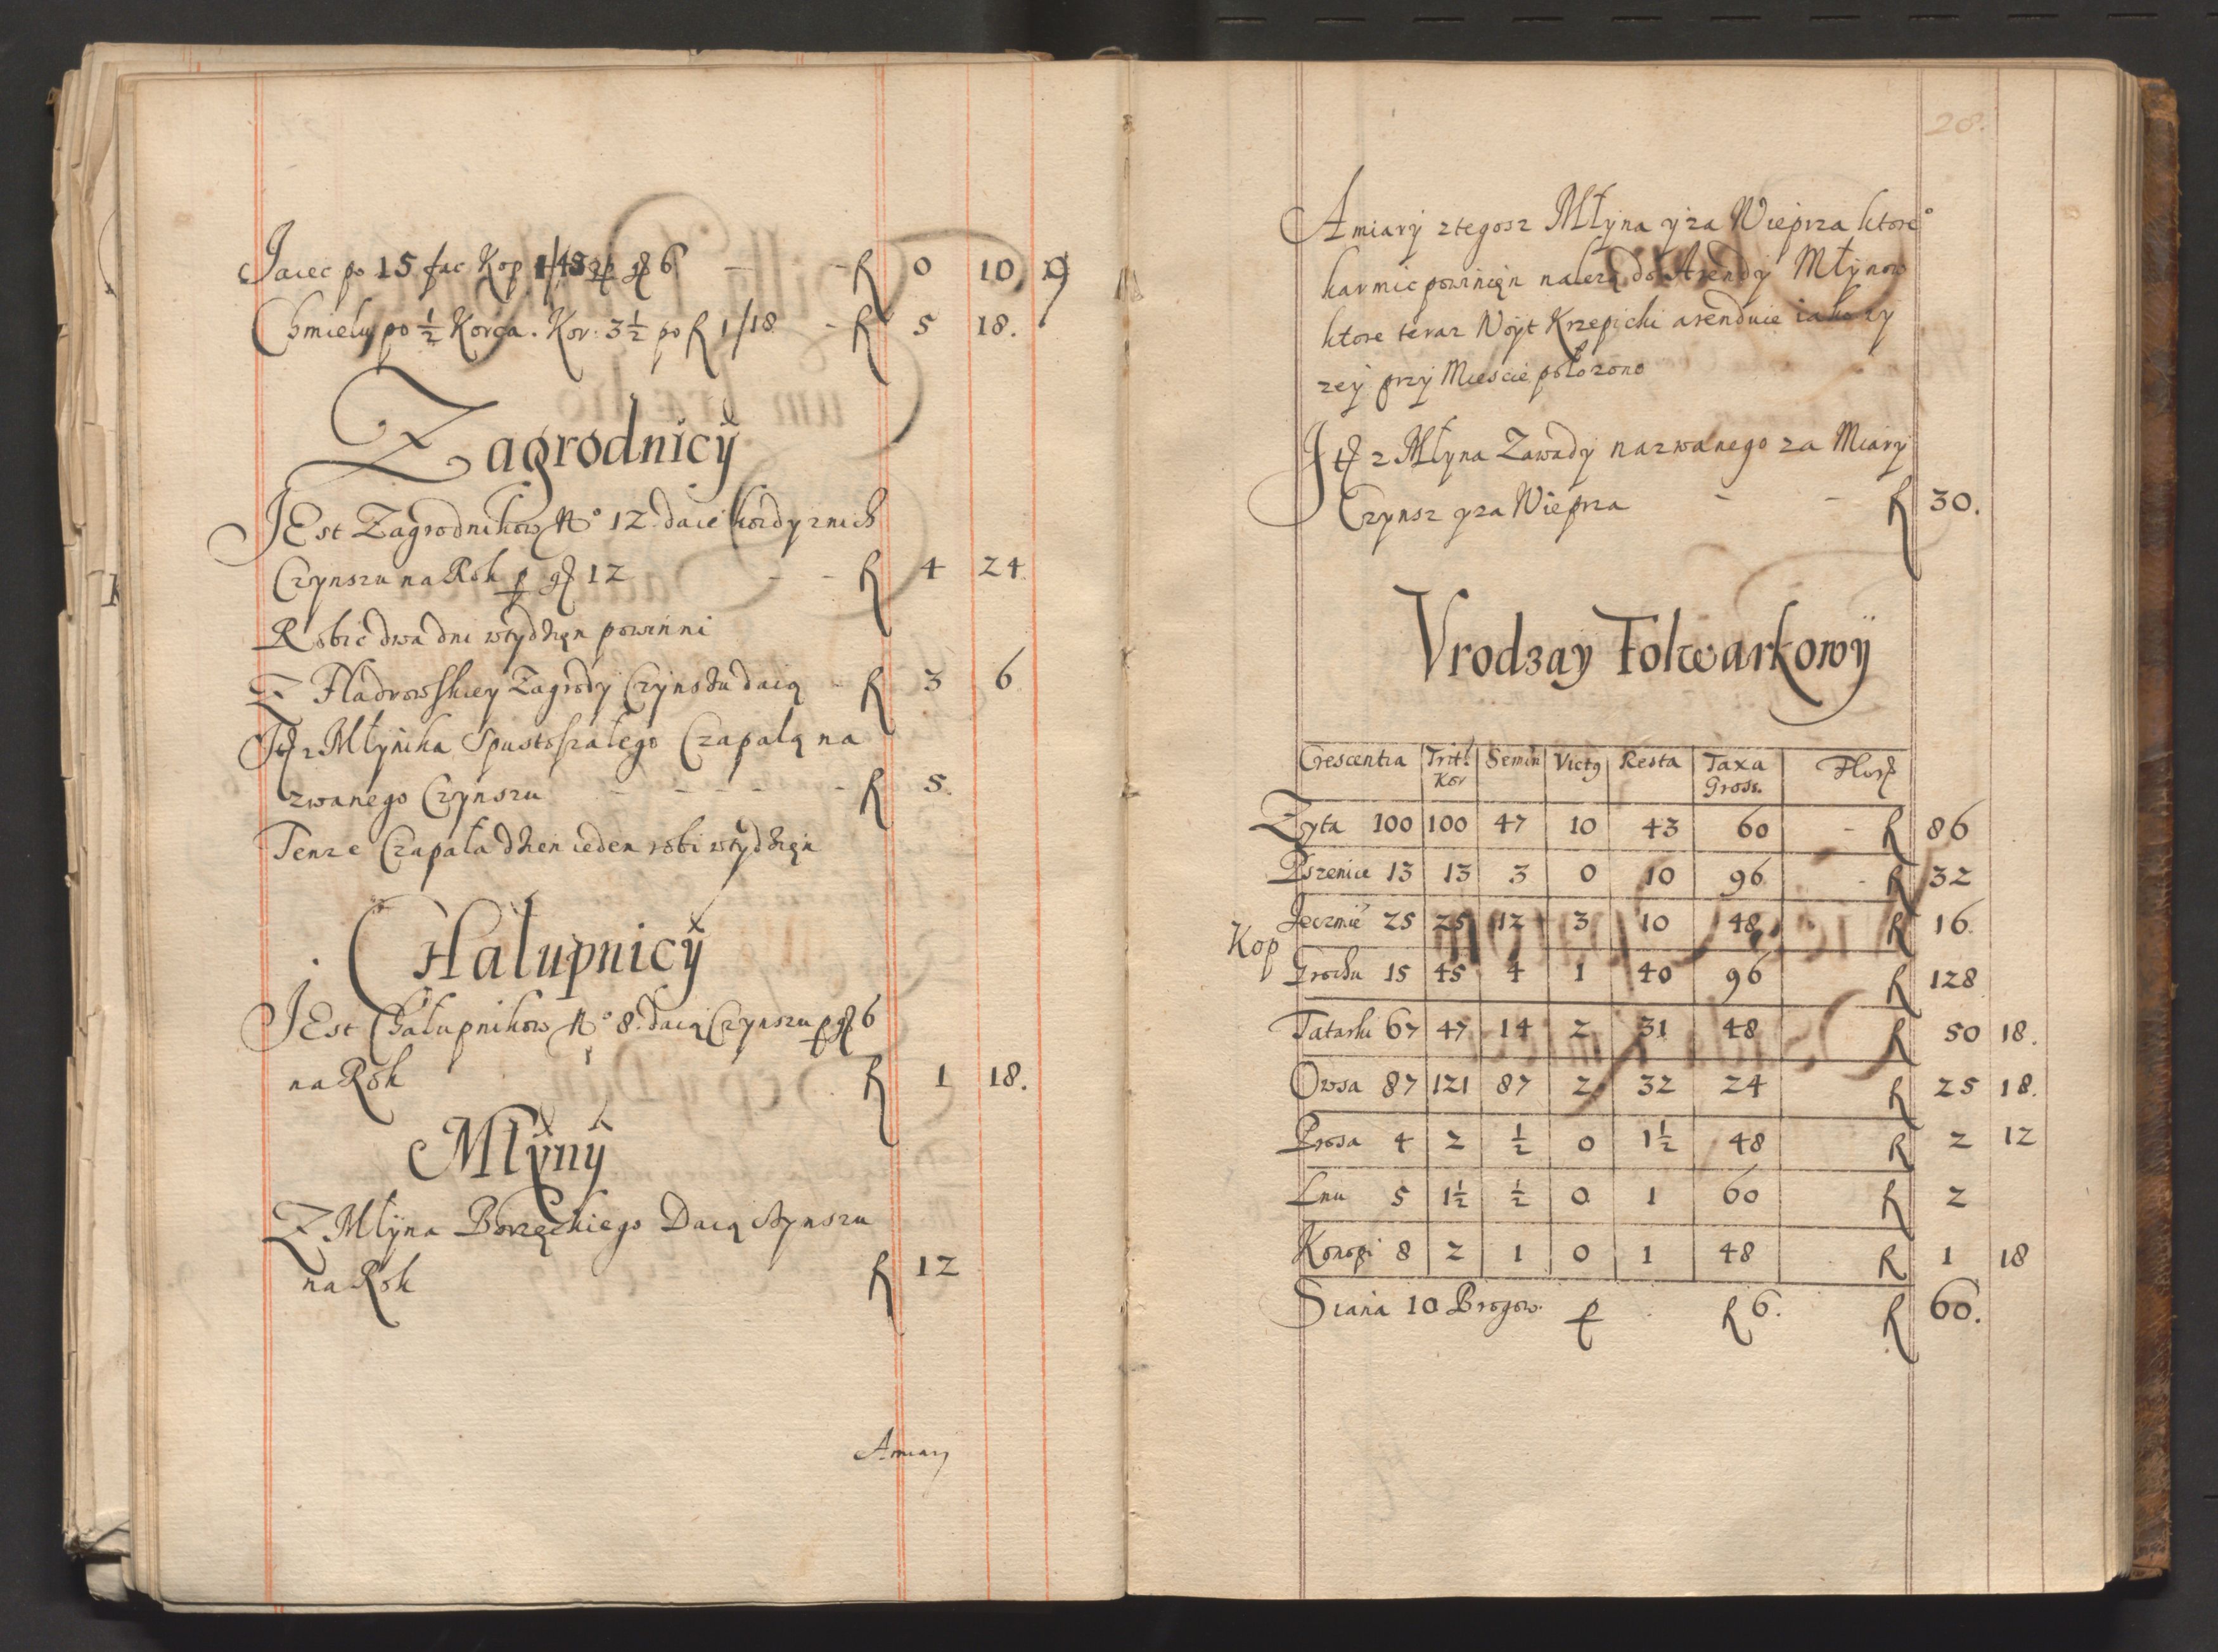 Jaiec po 15 fac Kop 1/45 p gr 6 - - fl 0 10 9
Chmielu po ½ Korca. Kor: 3½ po fl 1/18 - fl 5 18.
Zagrodnicÿ
JEst Zagrodnikow No 12. daie kozdy znich
Czynszu na Rok p gr 12 - - fl 4 24.
Robic dwa dni wtydzięn powinni
Z Fladrowskiey Zagrody Czynszu daią - fl 3 6
Jt z Młynika Spustoszałego Czapalą na
zwanego Czynszu - - - - - fl 5.
Tenze Czapała dzien ieden robi wtydzięn
CHałupnicÿ
JEst Chałupnikow No 8. daią Czynszu p gr 6
na Rok fl 1 18.
Młÿnÿ
Z Młÿna Borzęckiego Daią czynszu
na Rok fl 12
Amiary
28.
Amiary ztegosz Młÿna y za Wieprza ktoreo
karmic powinięn nalezą do Arendy Młynow
ktore teraz Woyt Krzepicki arenduie iako wy
zey przy Miescie połozono
Jt z Młyna Zawady nazwanego za Miary
Czynsz y za Wieprza - - fl 30.
Vrodzay Folwarkowÿ
Crescentia Trit: Kor Semin Vict9 Resta Taxa Gross. Flor
Zyta 100 100 47 10 43 60 - fl 86
Pszenice 13 13 3 0 10 96 - fl 32
Jeczmie 25 25 12 3 10 48 fl 16.
Kop
Grochu 15 45 4 1 40 96 fl 128
Tatarki 67 47 14 2 31 48 fl 50 18.
Owsa 87 121 87 2 32 24 fl 25 18.
Prosa 4 2 ½ 0 1½ 48 fl 2 12
Lnu 5 1½ ½ 0 1 60 fl 2
Konopi 8 2 1 0 1 48 fl 1 18
Siana 10 Brogow. p fl 6. fl 60.